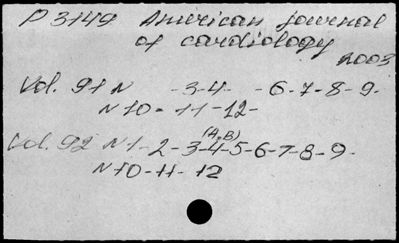 P 3149 American journal
of cardiology
2003
Vol. 91 N -3-4- -6-7-8-9-
N 10-11-12-
Vol. 92 N 1-2-3-4(A,B)-5-6-7-8-9-
N 10-11-12